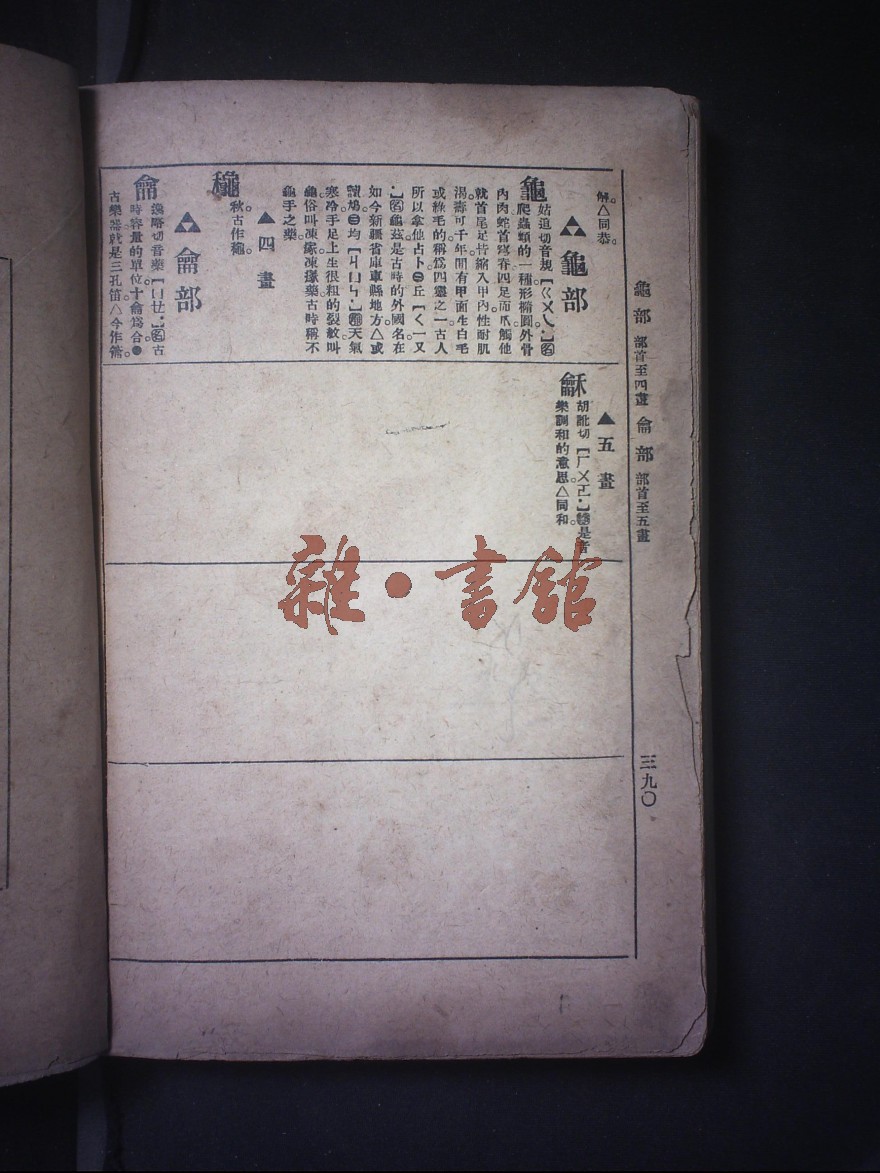 龜部 部首至四畫 龠部 部首至五畫
三九〇
解。△同恭。
龜部
龜
姑追切音規【ㄍㄨㄟ.】名
爬蟲類的一種形橢圓外骨
內肉蛇首龍脊四足而爪觸他
就首尾足皆縮入甲內性耐肌
渴。壽可千年間有甲面生白毛
或綠毛的稱爲四靈之一古人
所以拿他占卜㊁丘【ㄑ.又
.】名龜玆是古時的外國名在
如今新疆省庫車縣地方△或
讀鳩㊂均【ㄐㄩㄣ.】天氣
寒冷手足上生很粗的裂紋叫
龜俗叫凍瘃凍瘃藥古時稱不
龜手之藥
▲四畫
龝
秋古作龝。
龠部
龠
弋略切音藥【ㄩㄝ.】名古
時容量的單位十龠爲合●
古樂器就是三孔笛△今作籥。
▲五畫
龢
胡訛切【ㄏㄨㄛ.】是音
樂調和的意思△同和。
雜·書館